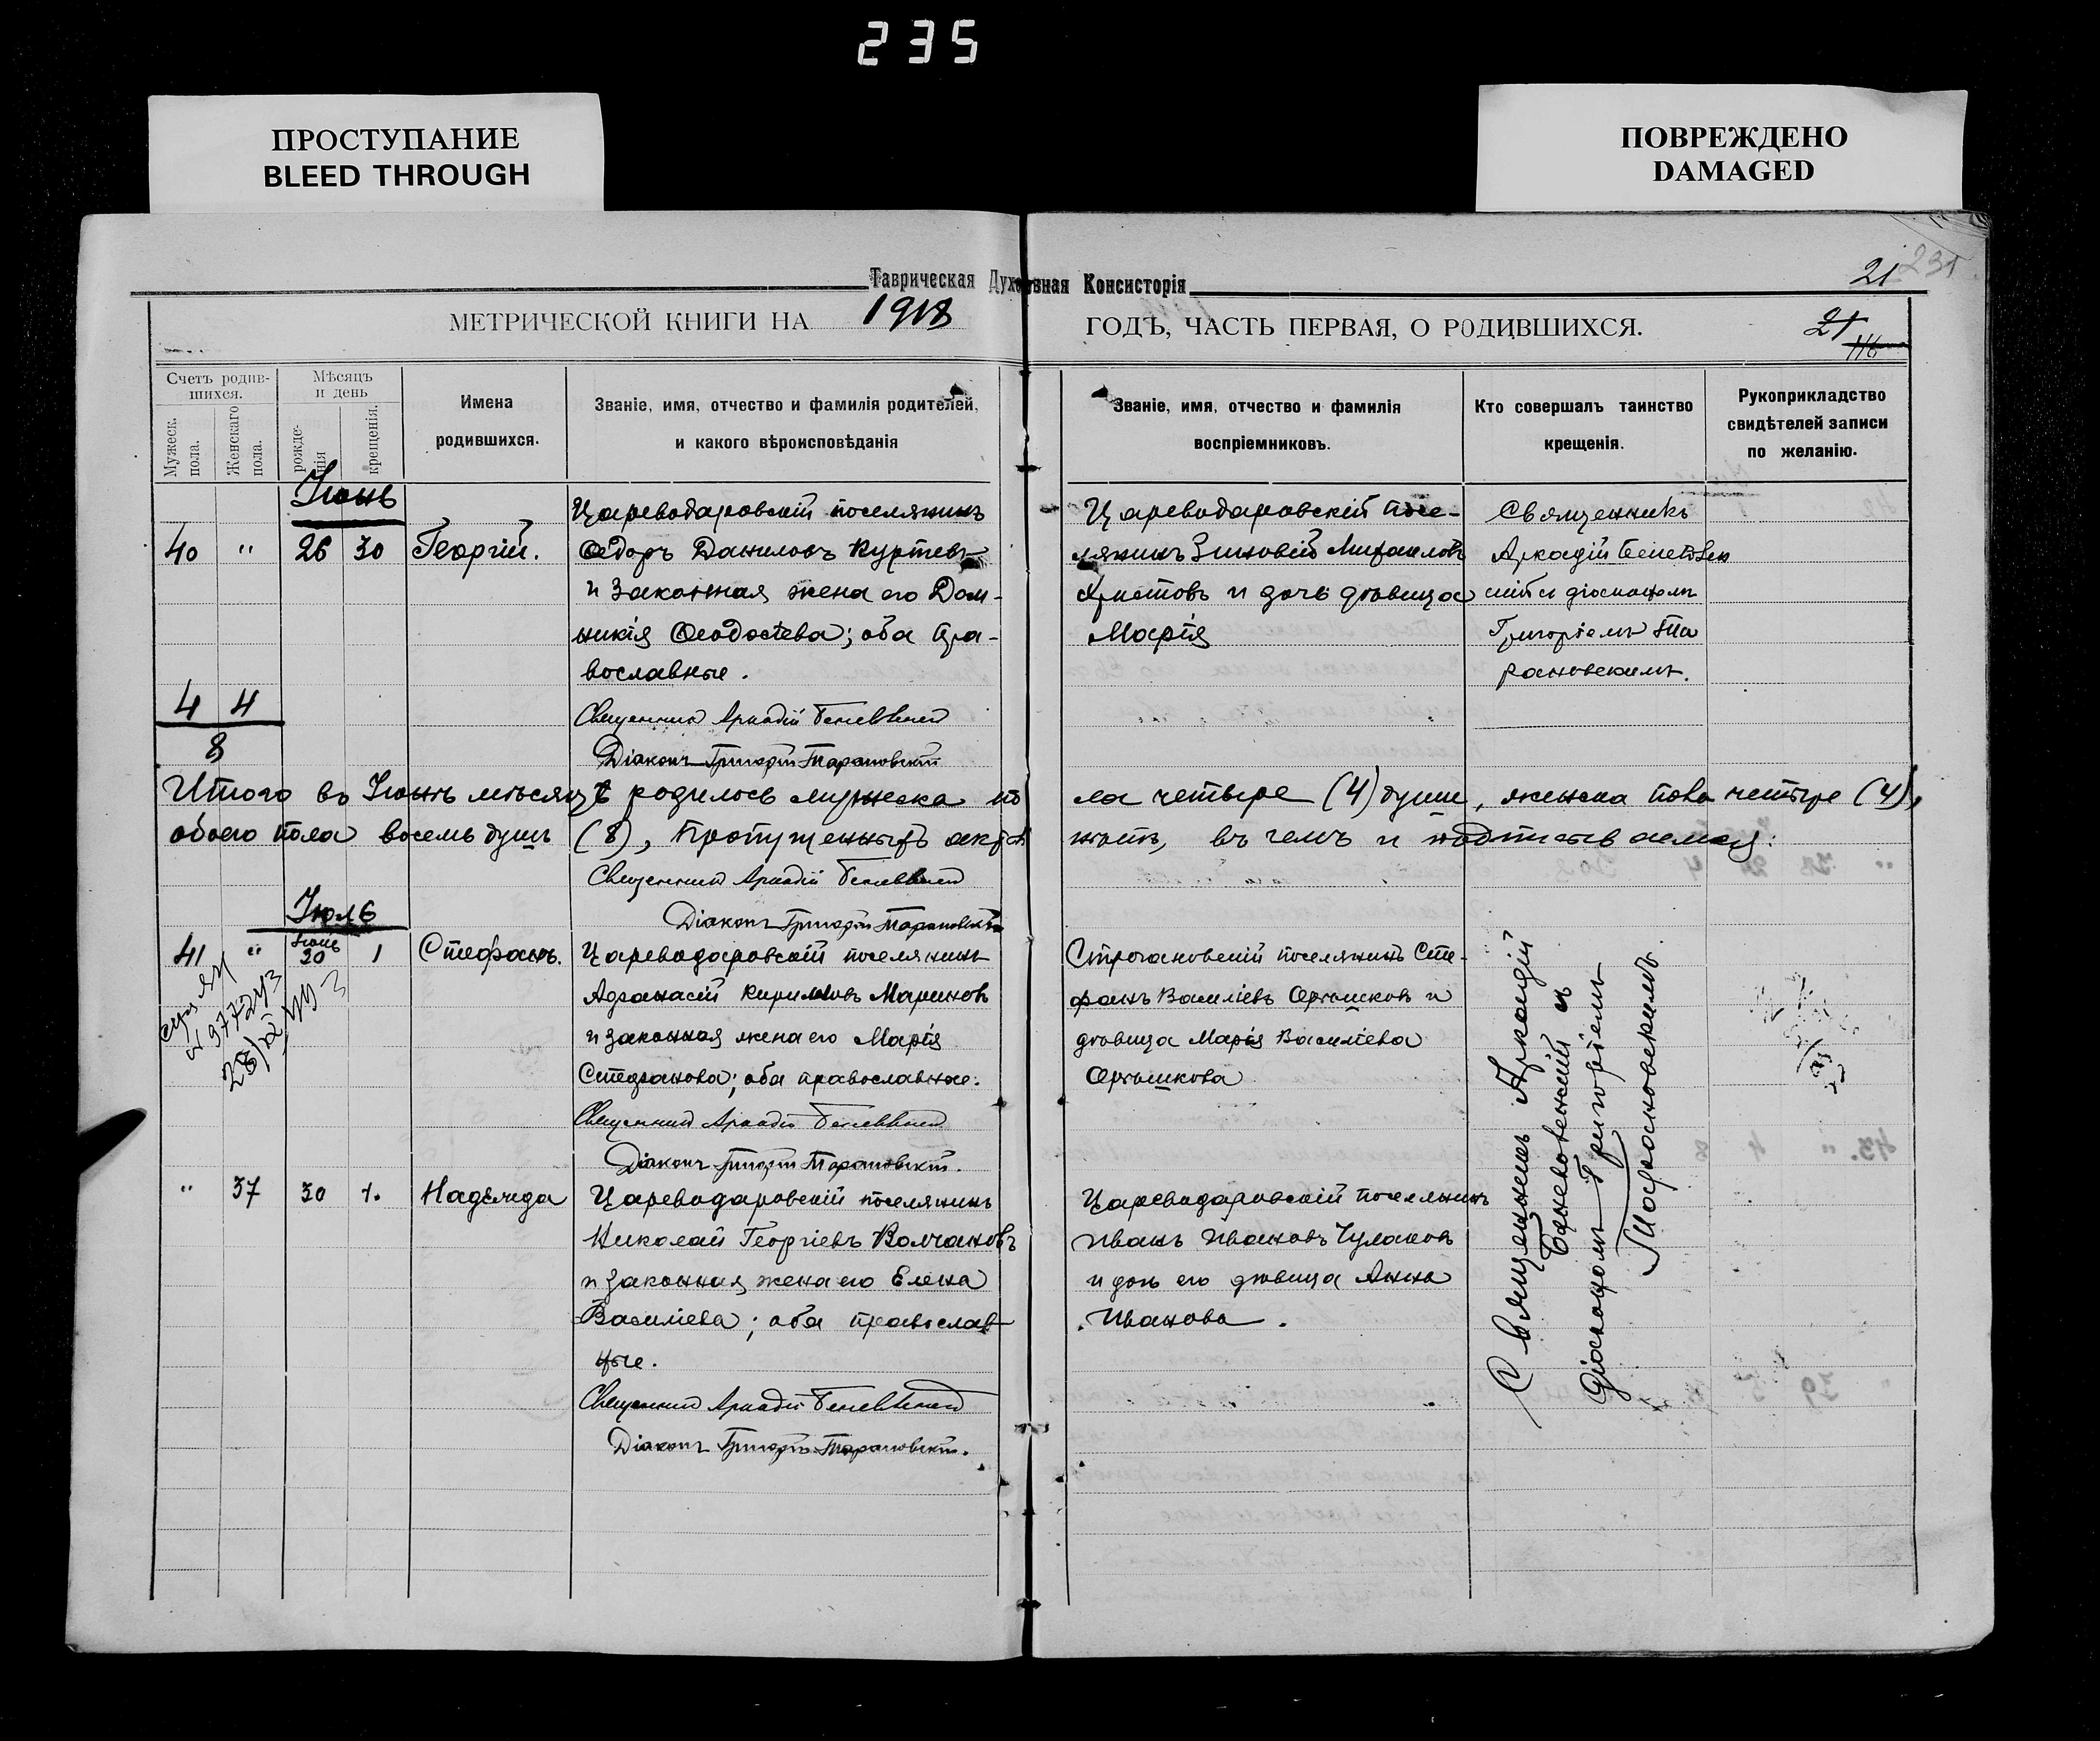 235
ПРОСТУПАНИЕ
BLEED THROUGH
ПОВРЕЖДЕНО
DAMAGED
Таврическая Духовная Консисторія
21 231
МЕТРИЧЕСКОЙ КНИГИ НА 1918 ГОДЪ, ЧАСТЬ ПЕРВАЯ, О РОДИВШИХСЯ.
21
116
Счетъ родив-
шихся.
Мужеск. пола.
Женскаго пола.
Мѣсяцъ
и день
рожде-
нія
крещенія.
Имена
родившихся.
Званіе, имя, отчество и фамилія родителей,
и какого вѣроисповѣданія
Званіе, имя, отчество и фамилія
воспріемниковъ.
Кто совершалъ таинство
крещенія.
Рукоприкладство
свидѣтелей записи
по желанію.
Іюнь
40 " 26 30 Георгій.
Цареводаровскій поселянинъ
Ѳедоръ Даниловъ Куртевъ
и законная жена его Дом-
никія Ѳеодосіева; оба пра-
вославные.
Священникъ Аркадій
Діаконъ Григорій Тарановскій
Цареводаровскій посе-
лянинъ Зиновій Михаиловъ
Христовъ и дочь дѣвица
Марія
Священникъ
Аркадій
діакономъ
Григоріемъ Та
рановскимъ.
4 4
8
Итого въ Іюнѣ мѣсяцѣ родилось мужеска по
ла четыре (4) души, женска пола четыре (4),
обоего пола восемь душъ (8), пропущенныхъ
нѣтъ, въ чемъ и подписываемся:
Священникъ Аркадій
Діаконъ Григорій Тарановскій
Іюль
41 " Іюнь 20 1 Стефанъ.
Цареводаровскій поселянинъ
Афанасій Кириловъ Мариновъ
и законная жена его Марія
Стефанова; оба православные.
Священникъ Аркадій
Діаконъ Григорій Тарановскій.
Строгановскій поселянинъ Сте-
фанъ Василіевъ и
дѣвица Марія Василіева
N 977243
Священникъ Аркадій
діакономъ Григоріемъ
Тарановскимъ.
" 37 30 1. Надежда
Цареводаровскій поселянинъ
Николай Георгіевъ Волчановъ
и законная жена его Елена
Василіева; оба православ-
ные.
Священникъ Аркадій
Діаконъ Григорій Тарановскій.
Цареводаровскій поселянинъ
Иванъ Ивановъ Чулаковъ
и дочь его дѣвица Анна
Иванова.